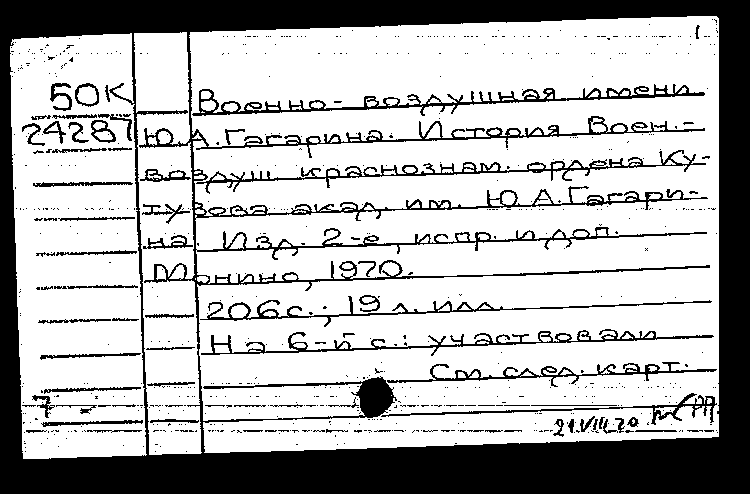 1
50К Военно-воздушная имени
24287 Ю.А.Гагарина. История Воен.-
воздуш краснознам. ордена Ку-
тузова акад. им. Ю.А.Гагари-
на. Изд. 2-е, испр. и доп.
Монино, 1970.
206 с.; 19 л. илл.
На 6-й с.: участвовали
См. след. карт.
7 -
21.VIII.70